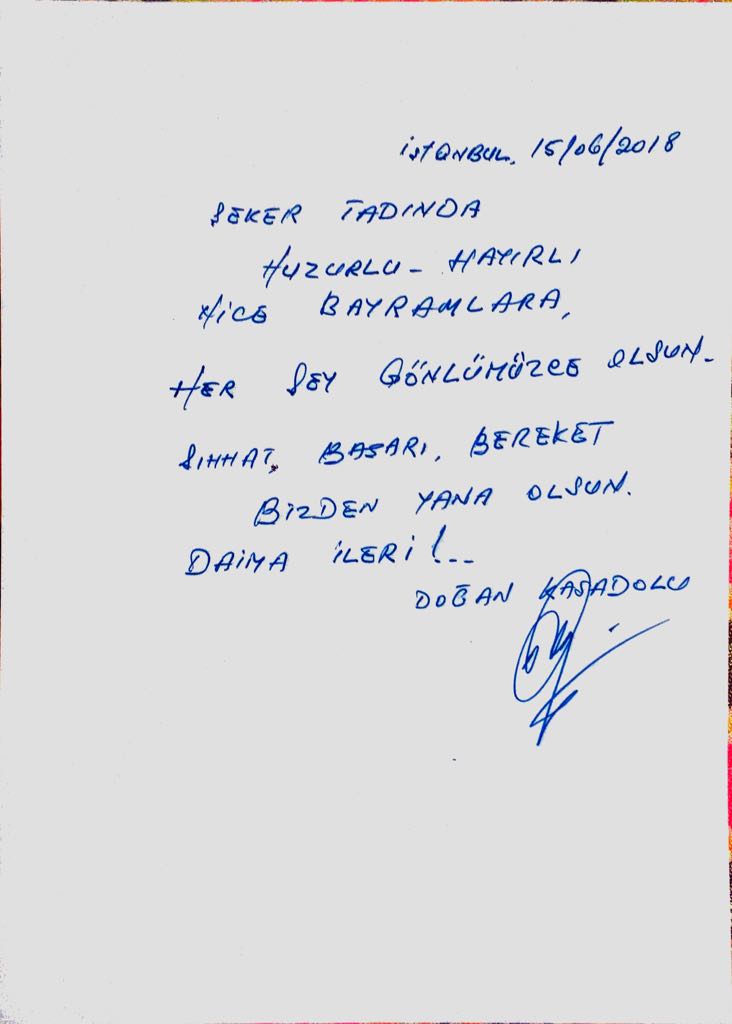 İSTANBUL. 15/06/2018
ŞEKER TADINDA
HUZURLU - HAYIRLI
NİCE BAYRAMLARA,
HER ŞEY GÖNLÜMÜZCE OLSUN -
SIHHAT, BAŞARI, BEREKET
BİZDEN YANA OLSUN.
DAİMA İLERİ!...
DOĞAN KASADOLU